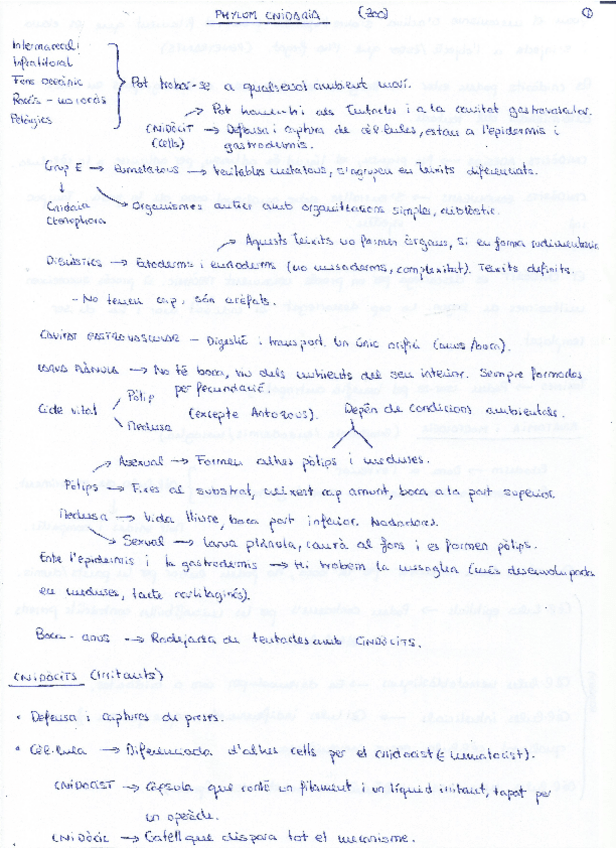 PHYLUM CNIDARIA (Zoo) 1
Intermareal i
Infralitoral
Fons oceànic
Pelàgics
Pot trobar-se a qualsevol ambient marí.
→ Pot haver-hi als tentacles i a la cavitat gastrovascular.
CNIDÒCIT → Defensa i captura de cèl·lules, estan a l'epidermis i
(cells) gastrodermis.
Grup E → Eumetazous → veritables metazous, s'agrupen en teixits diferenciats.
Cnidaria → Organismes antics amb organitzacions simples, diblàstic.
Ctenophora
→ Aquests teixits no formen òrgans, sí en forma rudimentària
Diblàstics → Ectoderm i endoderm (no mesoderm, complexitat). Teixits definits.
- No tenen cap, són acèfals.
CAVITAT GASTROVASCULAR - Digestió i transport. Un únic orifici (anus/boca).
LARVA PLÀNULA → No té boca, viu dels nutrients del seu interior. Sempre formades
per fecundació.
Cicle vital Pòlip
Medusa
(excepte Antozous). Depèn de condicions ambientals.
Asexual → Formen altres pòlips i meduses.
Pòlips → Fixes al substrat, creixent cap amunt, boca a la part superior.
Medusa → Vida lliure, boca part inferior. Nedadores.
Sexual → Larva plànula, caurà al fons i es formen pòlips.
Entre l'epidermis i la gastrodermis → Hi trobem la mesoglea (més desenvolupada
en meduses, tacte cartilaginós).
Boca - anus → Rodejada de tentacles amb CNIDÒCITS.
CNIDÒCITS (Irritants)
• Defensa i captures de preses.
• Cèl·lula → Diferenciada d'altres cells per el cnidocist (= nematocist).
CNIDOCIST → Càpsula que conté un filament i un líquid irritant, tapat per
un opercle.
CNIDOCIL → Gatell que dispara tot el mecanisme.